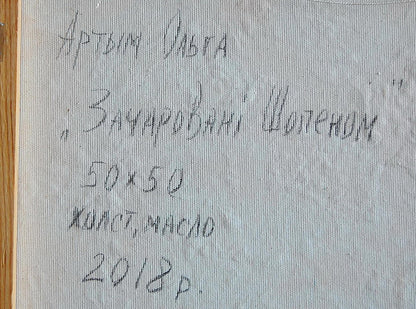 Артым Ольга
„Зачаровані Шопеном"
50×50
холст, масло
2018 р.